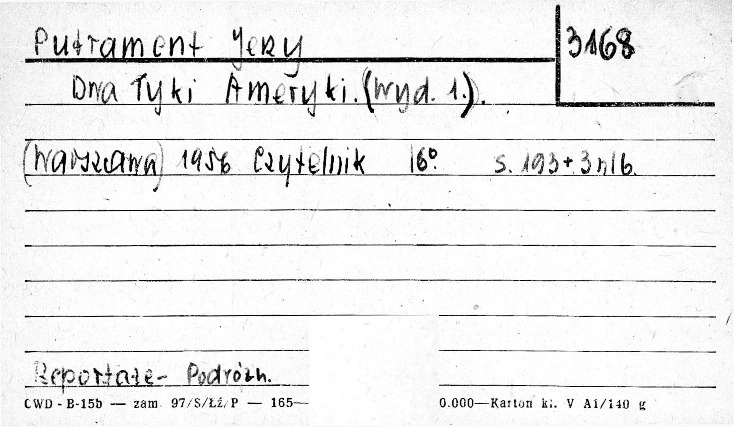 Putrament Jerzy
3168
Dwa Łyki Ameryki. (Wyd. 1.).
(Warszawa) 1956 Czytelnik 16° s. 193+3nlb.
Reportaże - Podróżn.
CWD - B-15b — zam. 97/S/Łź/P — 165— 0.000—Karton kl. V A1/140 g